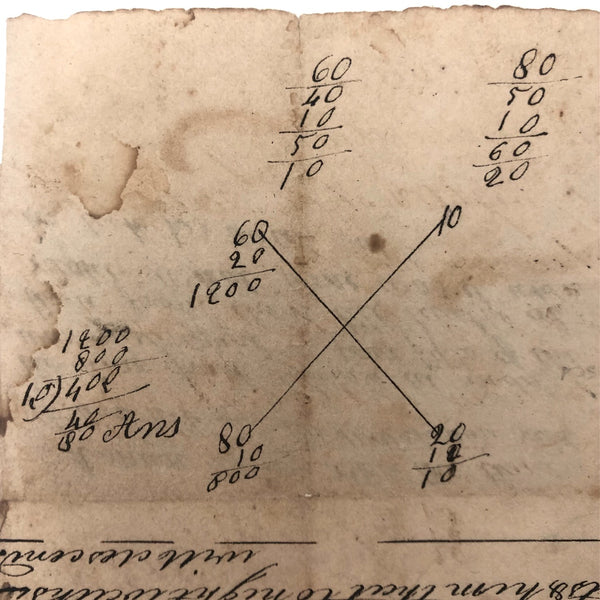 60 80
40 50
10 10
50 60
10 20
60 10
20
1200
1200
800
10)400
40
80 Ans
80 20
10 10
800 10
will descend
him that to night